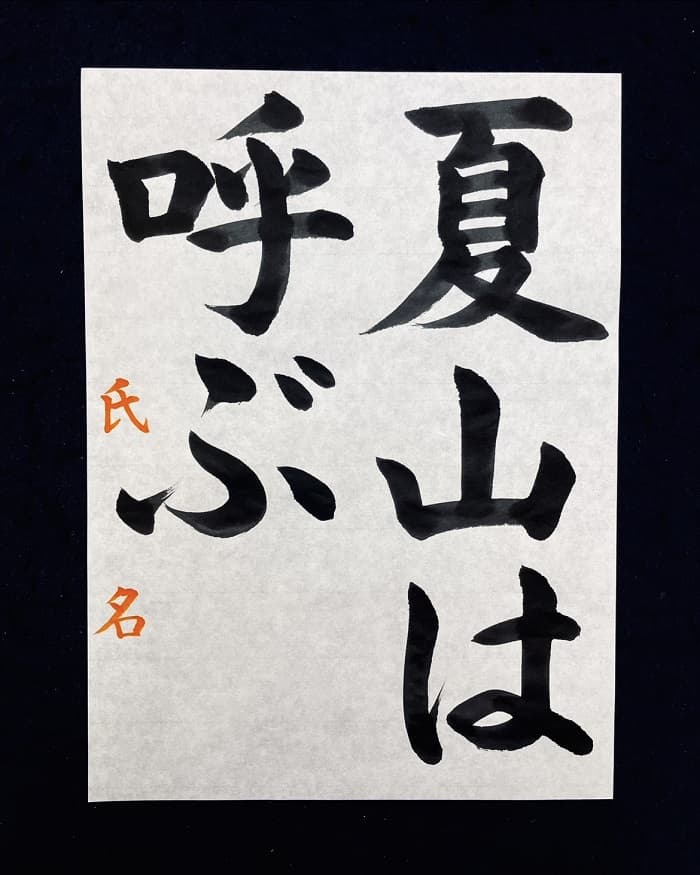 夏山は
呼ぶ
氏名